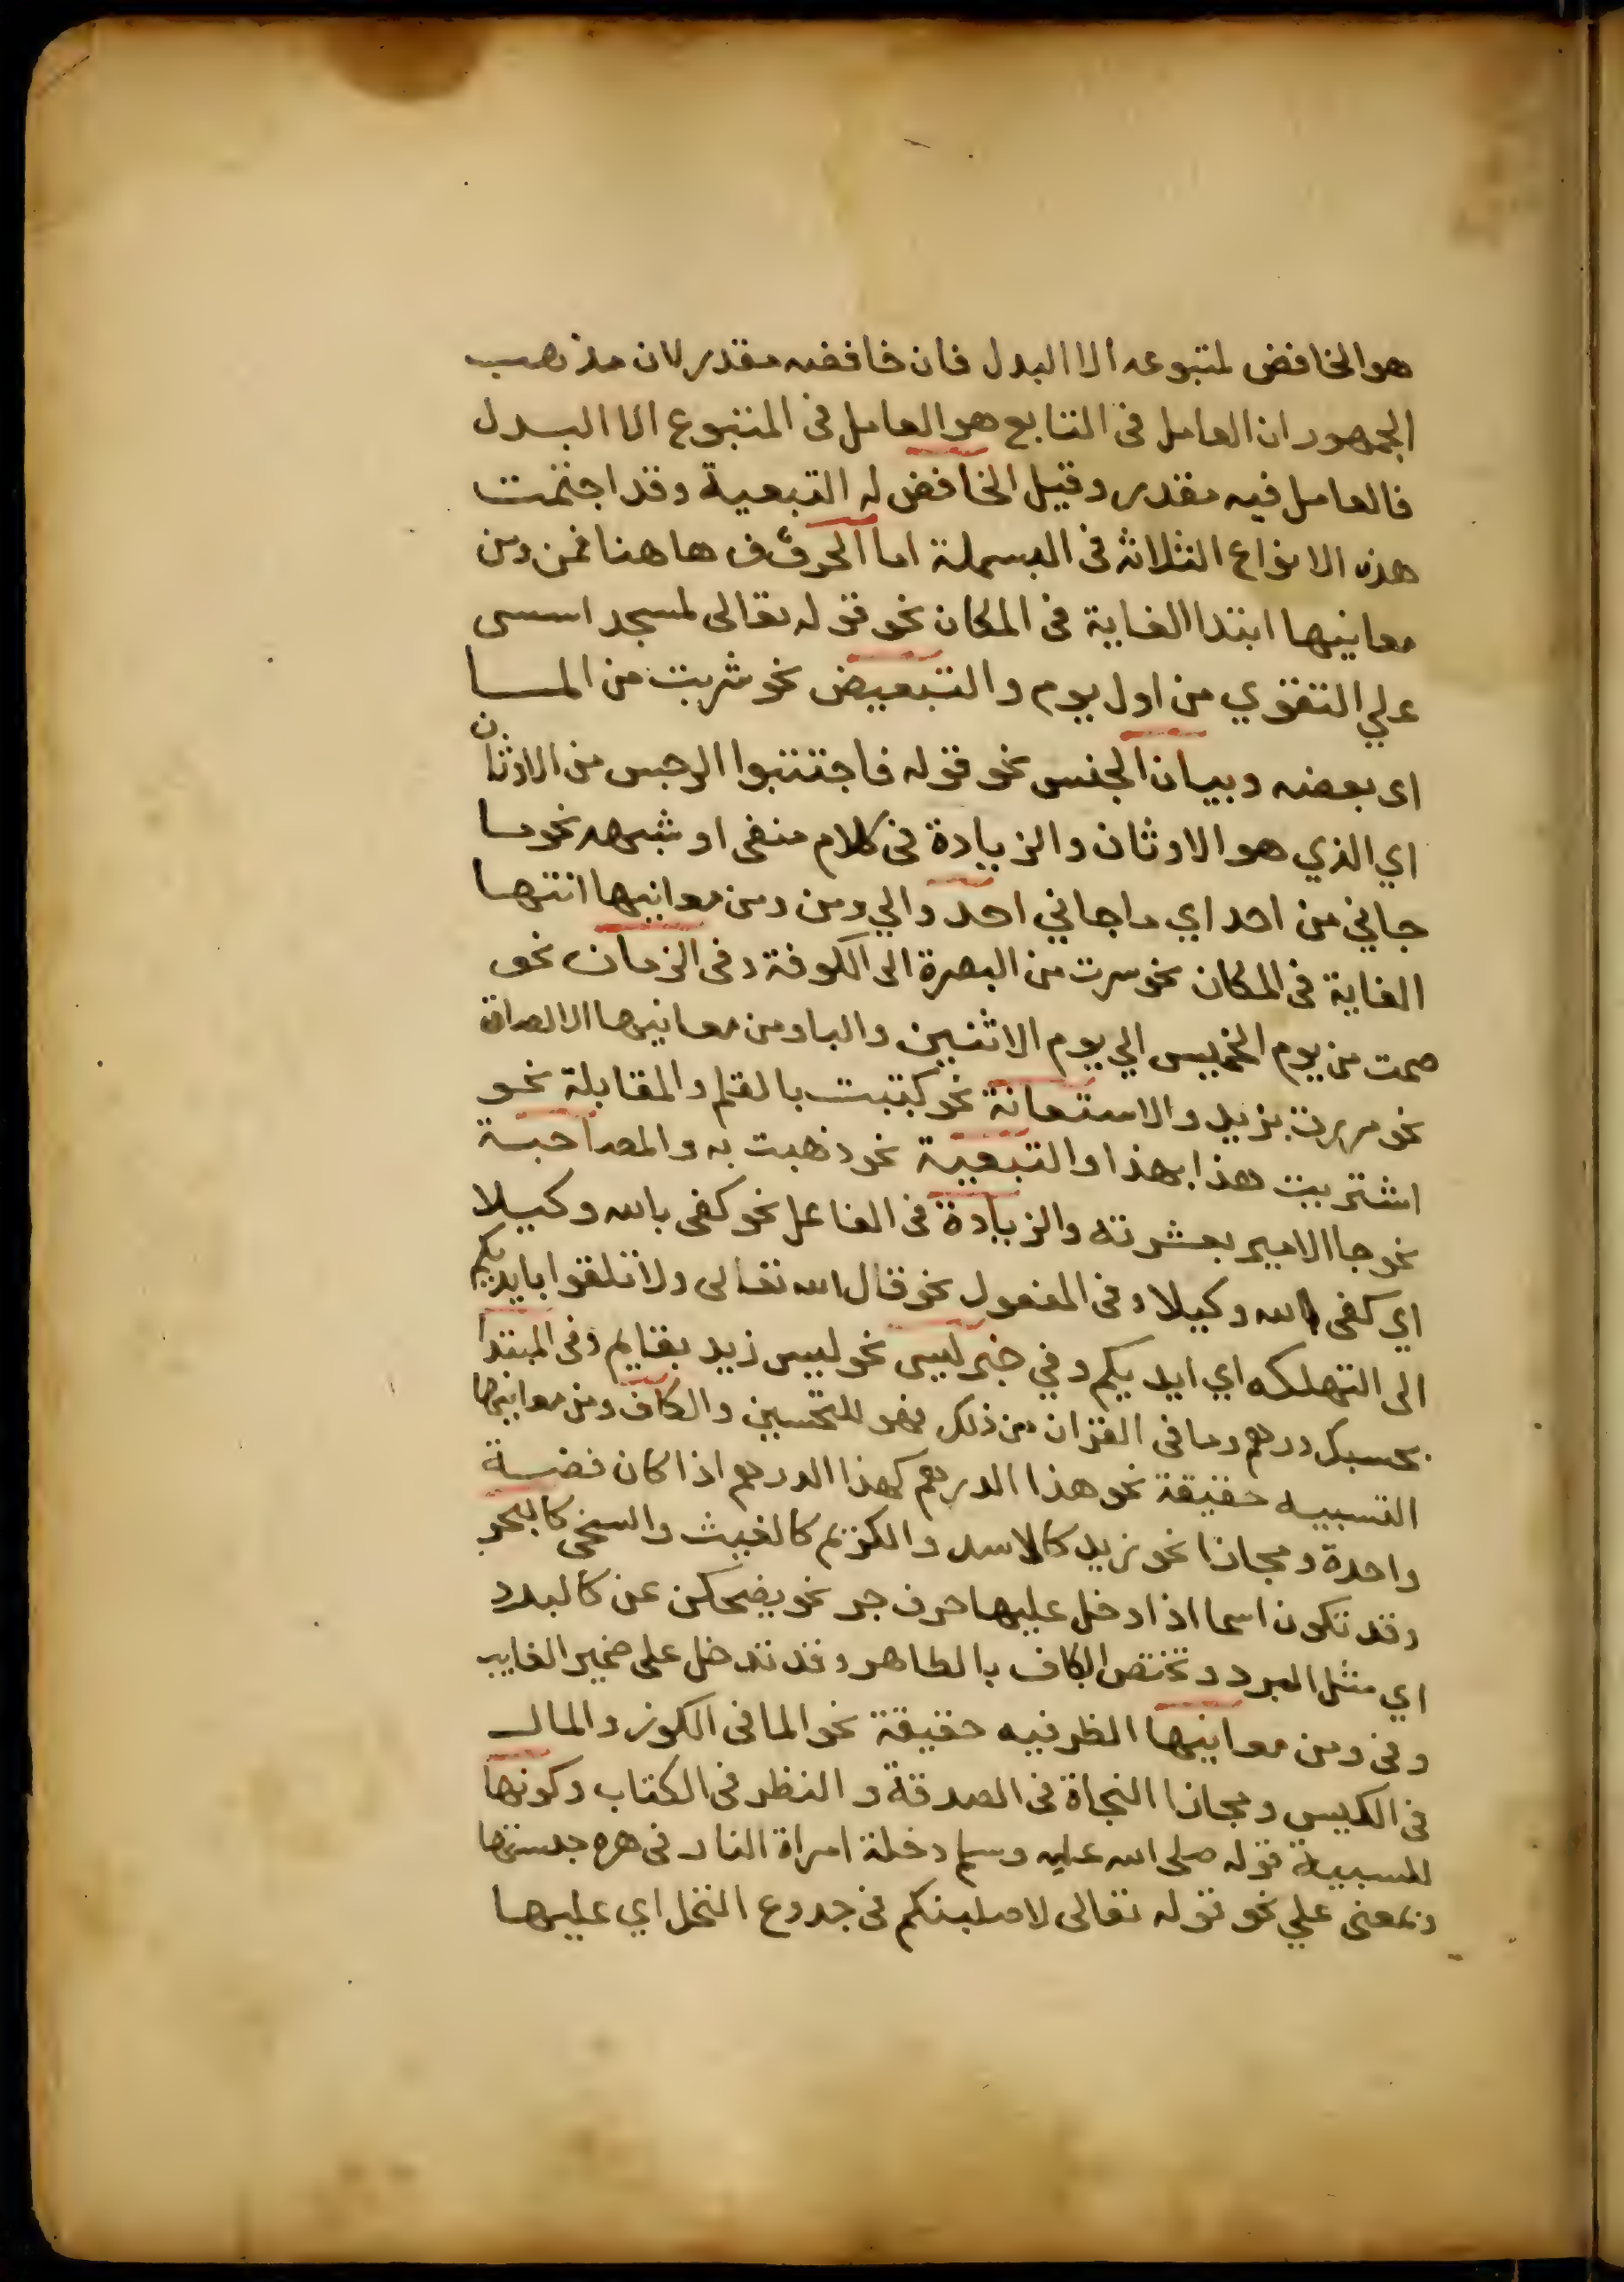 هو الخافض لمتبوعه الا البدل فان خافضه مقدر لان مذهب
الجمهور ان العامل فى التابع هو العامل فى المتبوع الا البدل
فالعامل فيه مقدر وقيل الخافض له التبعية وقد اجتمت
هذه الانواع الثلاثه فى البسملة اما الحروف هاهنا فمن ومن
معانيها ابتدا الغاية فى المكان نحو قوله تعالى لمسجد اسس
علي التقوي من اول يوم والتبعيض نحو شربت من المـا
اى بعضه وبيان الجنس نحو قوله فاجتنبوا الرجس من الاوثان
اي الذي هو الاوثان والزيادة فى كلام منفى او شبهه نحو ما
جاني من احد اي ما جاني احد والي ومن ومن معانيها انتها
الغاية فى المكان نحو سرت من البصرة الى الكوفة وفى الزمان نحو
صمت من يوم الخميس الي يوم الاثنين والبا ومن معانيها الالصاق
نحو مررت بزيد والاستعانة نحو كتبت بالقلم والمقابلة نحو
اشتريت هذا بهذا والتبعية نحو ذهبت به والمصاحبة
نحو جا الامير بعشرته والزيادة فى الفاعل نحو كفى بالله وكيلا
اي كفى الله وكيلا وفى المفعول نحو قال الله تعالى ولا تلقوا بايديكم
الى التهلكه اي ايديكم وفي خبر ليس نحو ليس زيد بقايم وفى المبتدا
بحسبك درهم وما فى القران من ذلك فهو للتحسين والكاف ومن معانيها
التسبيه حقيقة نحو هذا الدرهم كهذا الدرهم اذا كان فضة
واحدة ومجازا نحو زيد كالاسد والكريم كالغيث والسخى كالبحر
وقد تكون اسما اذا دخل عليها حرف جر نحو يضحكن عن كالبدرد
اي مثل البرد وتختص الكاف بالظاهر وقد تدخل على ضمير الغايب
وفى ومن معانيها الظرفيه حقيقة نحو الما فى الكوز والمال
فى الكيس ومجازا النجاة فى الصدقة والنظر فى الكتاب وكونها
للسببية قوله صلى الله عليه وسلم دخلة امراة النار فى هره حبستها
وبمعنى علي نحو قوله تعالى لاصلبنكم فى جدوع النخل اي عليها